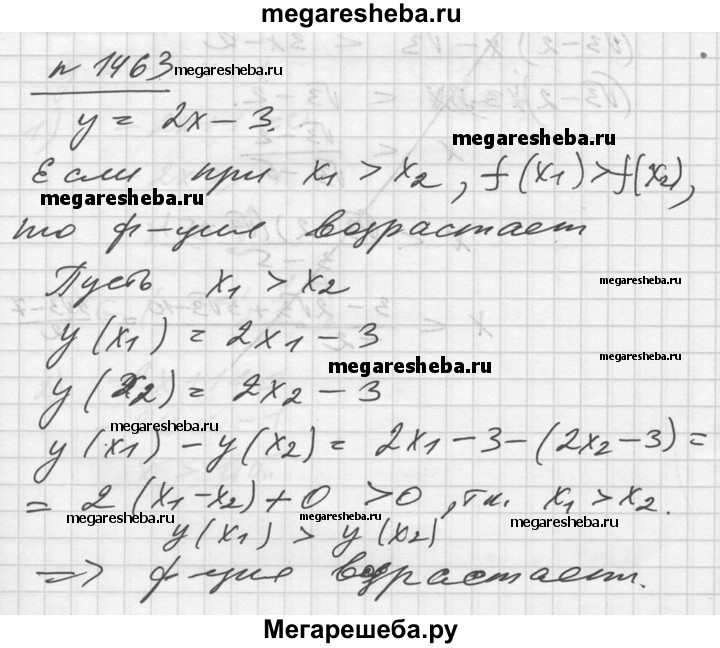 megaresheba.ru
n 1463 megaresheba.ru
y = 2x - 3.
megaresheba.ru
Если при x₁ > x₂, f(x₁) > f(x₂),
megaresheba.ru
то ф-ция возрастает
Пусть x₁ > x₂
megaresheba.ru
y(x₁) = 2x₁ - 3
megaresheba.ru
megaresheba.ru
y(x₂) = 2x₂ - 3
megaresheba.ru
y(x₁) - y(x₂) = 2x₁ - 3 - (2x₂ - 3) =
= 2(x₁ - x₂) + 0 > 0, т.к. x₁ > x₂.
megaresheba.ru megaresheba.ru megaresheba.ru
y(x₁) > y(x₂)
=> ф-ция возрастает.
Мегарешеба.ру